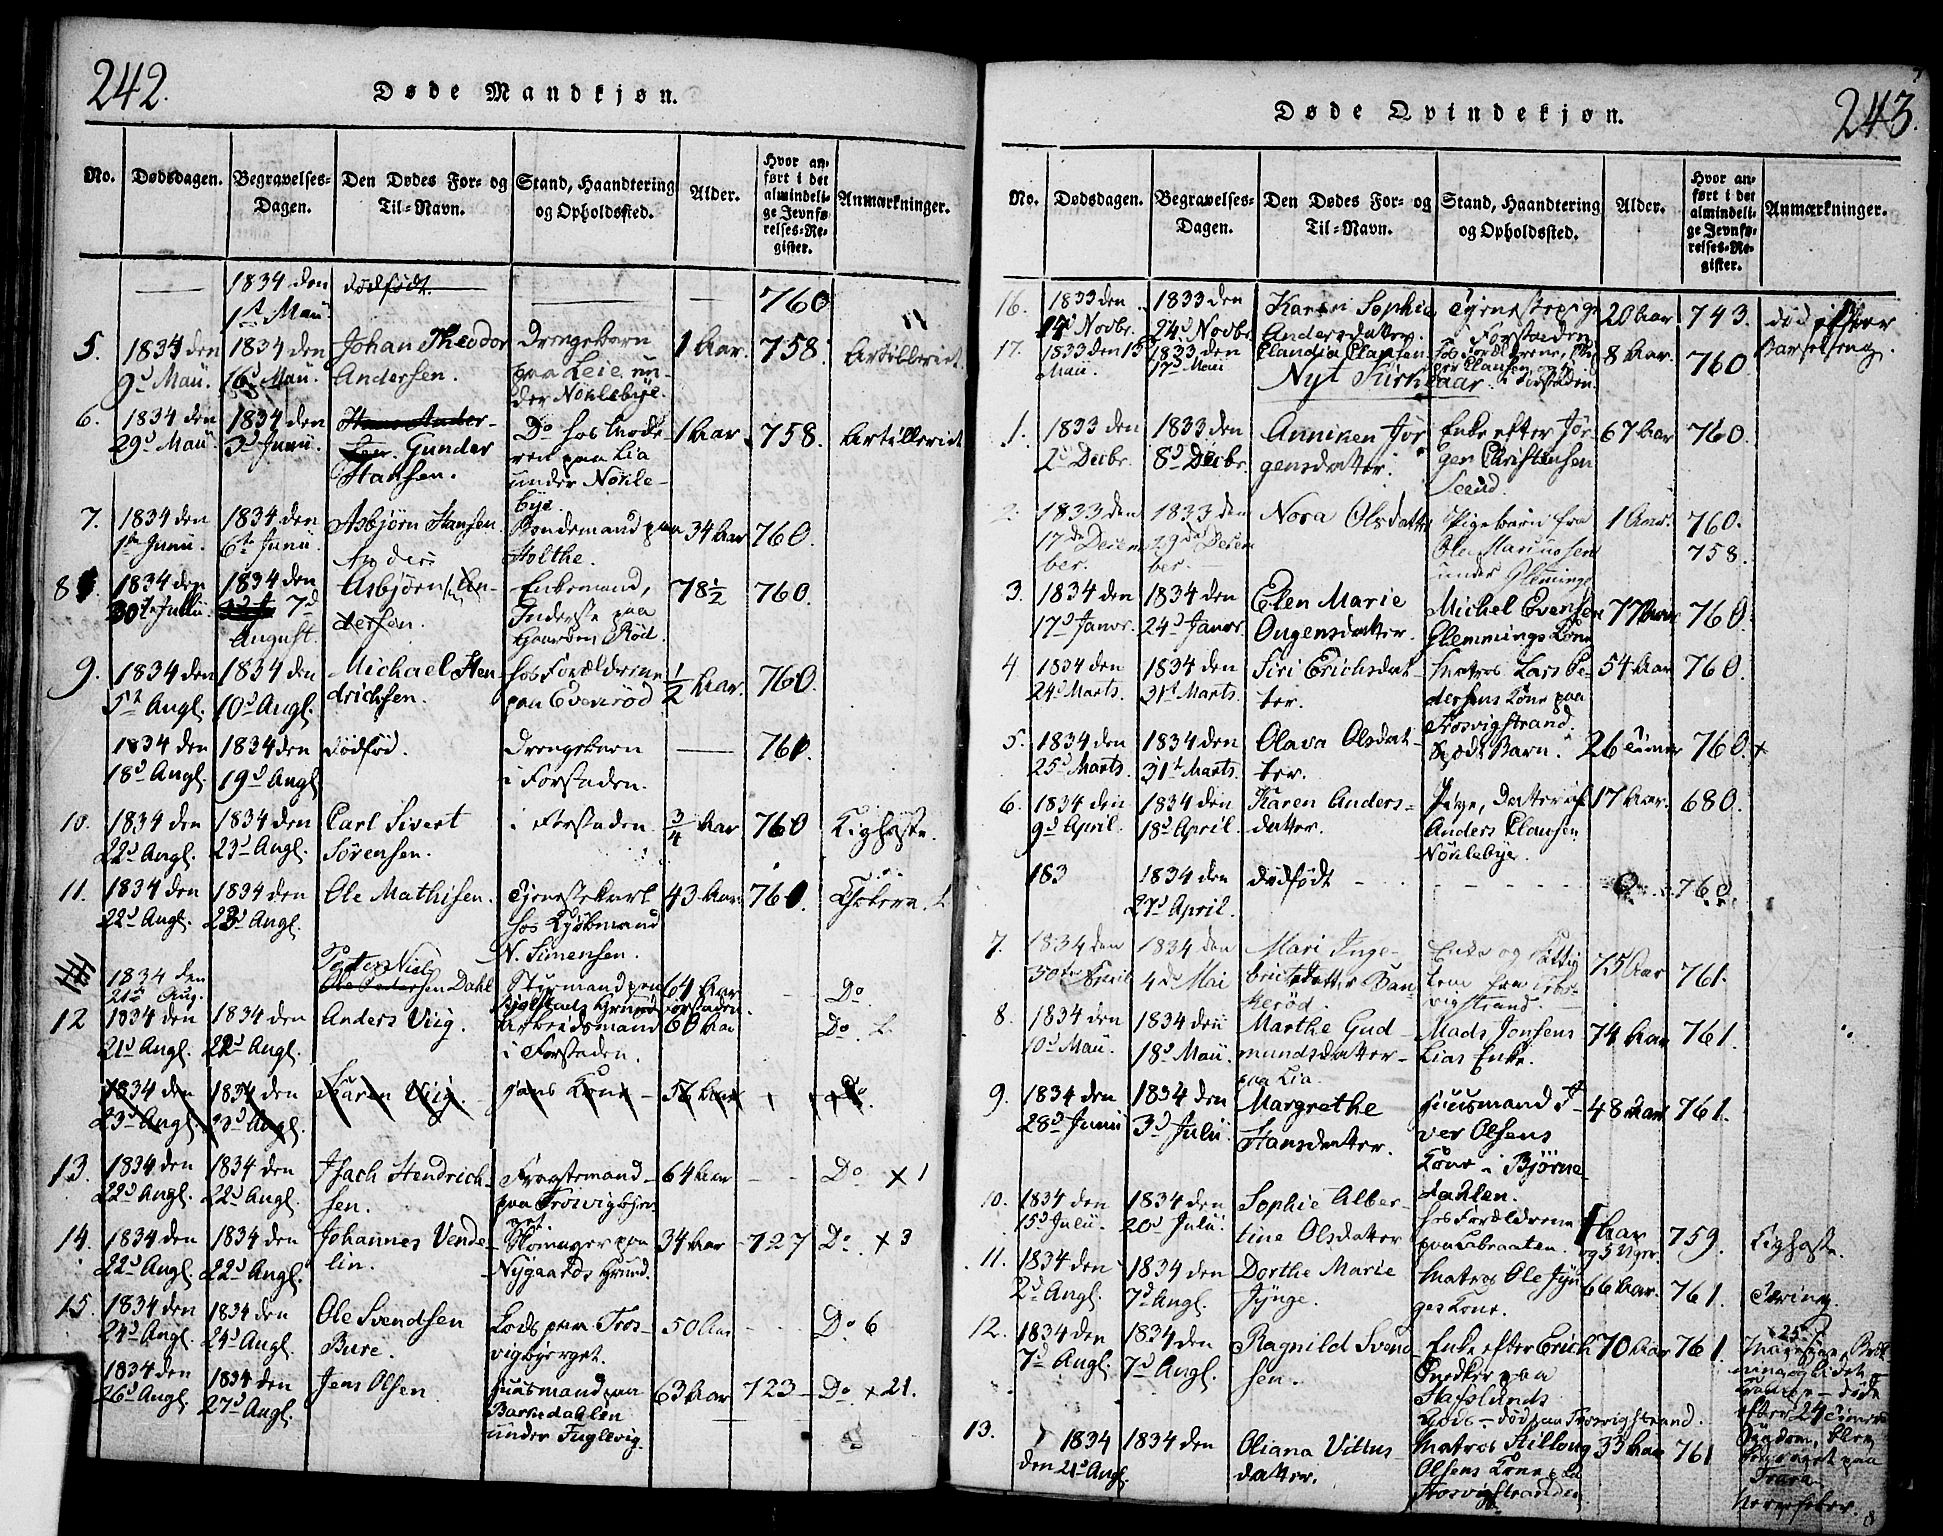 242.
Døde Mandkjøn.
No.
Dødsdagen.
Begravelses-
Dagen.
Den Dødes For- og
Til-Navn.
Stand, Haandtering
og Opholdssted.
Alder.
Hvor an-
ført i det
almindeli-
ge Jevnfø-
relses-Re-
gister.
Anmærkninger.
1834 den
1st Maii
dødfødt.
760
5.
1834 den
9d Maii.
1834 den
16d Maii.
Johan Theodor
Andersen.
Drengebarn
paa Leie un-
der Nøhlebÿe.
1 Aar.
758.
Artilleriet
6.
1834 den
29d Maii
1834 den
3d Junii.
Gunder
Hansen.
Do hos Mode-
ren paa Lia
under Nøhle-
bÿe
1 Aar.
758.
Artilleriet
7.
1834 den
1ste Junii.
1834 den
6te Junii.
Asbjørn Hansen
Bondemand paa
Holthe.
34 Aar
760.
8
1834 den
30te Julii.
1834 den
7d
August.
Asbjørn An-
dersen.
Enkemand,
Inderste paa
Gaarden Rød.
78 1/2
760.
9.
1834 den
5te Augl.
1834 den
10d Augl.
Michael Hen
drichsen.
hos Forældrene
paa Evenrød
1/2 Aar.
760.
1834 den
18d Augl.
1834 den
19d Augl
dødfød.
Drengebarn
i Forstaden.
760.
10.
1834 den
22d Augl.
1834 den
23d Augl.
Carl Sivert
Sørensen.
i Forstaden.
3/4 Aar
760
Kighoste.
11.
1834 den
22d Augl.
1834 den
23d Augl.
Ole Mathisen.
Tjenestekarl
hos Kjøbmand
N. Simensen.
43 Aar.
760.
Cholera.
1834 den
21de Aug.
Peter Niels
Dahl
Styrmand paa
Forstaden.
64 Aar
Do
12
1834 den
21d Augl.
1834 den
22d Augl.
Anders Viig.
Arbeidsmand
i Forstaden.
60 Aar
Do
1834 den
23d Augl.
1834 den
23d Augl.
Karen Viig.
hans Kone
56 Aar
Do.
13.
1834 den
22d Augl.
1834 den
22d Augl.
Isach Hendrich-
sen.
Fragtemand
paa Trosvigbjer
get.
64 Aar
Do x 1
14.
1834 den
22d Augl.
1834 den
22d Augl.
Johannes Vende-
lin.
Skomager paa
Nÿgaards Grund.
34 Aar
727
Do. x 3
15.
1834 den
24d Augl.
1834 den
24d Augl.
Ole Svendsen
Bure.
Lods paa Tros-
vigbjerget.
50 Aar
Do 6
1834 den
26d Augl.
1834 den
27d Augl.
Jens Olsen
Huusmand paa
Barkedahlen
under Fuglevig.
63 Aar
723
Do x 21.
243.
Døde Qvindekjøn.
No.
Dødsdagen.
Begravelses-
Dagen.
Den Dødes For- og
Til-Navn.
Stand, Haandtering
og Opholdssted.
Alder.
Hvor an-
ført i det
almindeli-
ge Jevnfø-
relses-Re-
gister.
Anmærkninger.
16.
1833 den
14d Novbr.
1833 den
24d Novbr
Karen Sophie
Andersdatter.
Tjenestepige
i Forstaden
20 Aar
743.
død efter
Barselseng.
17.
1833 den 13
Maii.
1833 den
17d Maii
Claudia Clausen
hos Forældrene,
Clausen
i Forstaden.
8 Aar.
760
Nyt Kirkeaar.
1.
1833 den
2d Decbr.
1833 den
8d Decbr.
Anniken Jør
gensdatter.
Enke efter Jør
gen Christensen
67 Aar
760.
2.
1833 den
17de Decem
ber.
1833 den
29de Decem
ber.
Nora Olsdatter
Pigebarn fra
Ole Marinusen
under Gleminge
1 Aar.
760.
758.
3.
1834 den
17d Janvr.
1834 den
24d Janvr.
Elen Marie
Ougensdatter.
Michel Evensen
Glemminges Kone
77 Aar
760.
4
1834 den
24d Marts.
1834 den
31st Marts.
Siri Erichsdat-
ter.
Matros Lars Pe-
dersens Kone paa
Trosvigstrand.
54 Aar
760.
5.
1834 den
25d Marts.
1834 den
31t Marts.
Olava Olsdat-
ter.
Barn.
26 Timer
760. x
6.
1834 den
9d April.
1834 den
18d April.
Karen Anders-
datter.
Pige, Datter af
Anders Clausen
Nøhlebÿe.
17 Aar.
680.
183
1834 den
27d April.
dødfødt
760.
7.
1834 den
30te April
1834 den
4de Mai
Mari Inge-
brictsdatter Ban-
kerød.
Enke og Fattig
lem fra Tros-
vigstrand.
75 Aar
761.
8.
1834 den
10d Maii.
1834 den
18d Maii.
Marthe Gud
mundsdatter
paa Lia.
Mads Jensens
Lias Enke.
74 Aar
761.
9.
1834 den
28d Junii
1834 den
3d Julii.
Margrethe
Hansdatter.
Huusmand I-
ver Olsens
Kone i Bjørne
dahlen.
48 Aar
761.
10.
1834 den
15d Julii.
1834 den
20d Julii.
Sophie Alber-
tine Olsdatter
hos Forældrene
paa Labraaten.
1 Aar
og 5 Uger.
759.
Kighoste.
11.
1834 den
2d Augl.
1834 den
7d Augl.
Dorthe Marie
Jÿnge.
Matros Ole Jÿn
ges Kone.
66 Aar.
761.
Tæring.
12.
1834 den
7d Augl.
1834 den
7d Augl.
Ragnild Svend-
sen.
Enke efter Erich
Snedker paa
Hafslunds
Gods - død paa Trosvigstrand.
70 Aar
761.
x 25.
døde
efter 24 Timers
Sÿgdom, blev
begravet paa
13.
1834
den 21d Augl.
1834 den
Oliana Vittus
datter.
Matros
Olsens Kone
Trosvigstranden
33 Aar
761